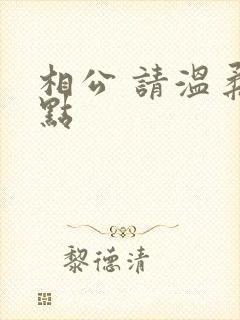 相公 請溫柔
點
黎德清